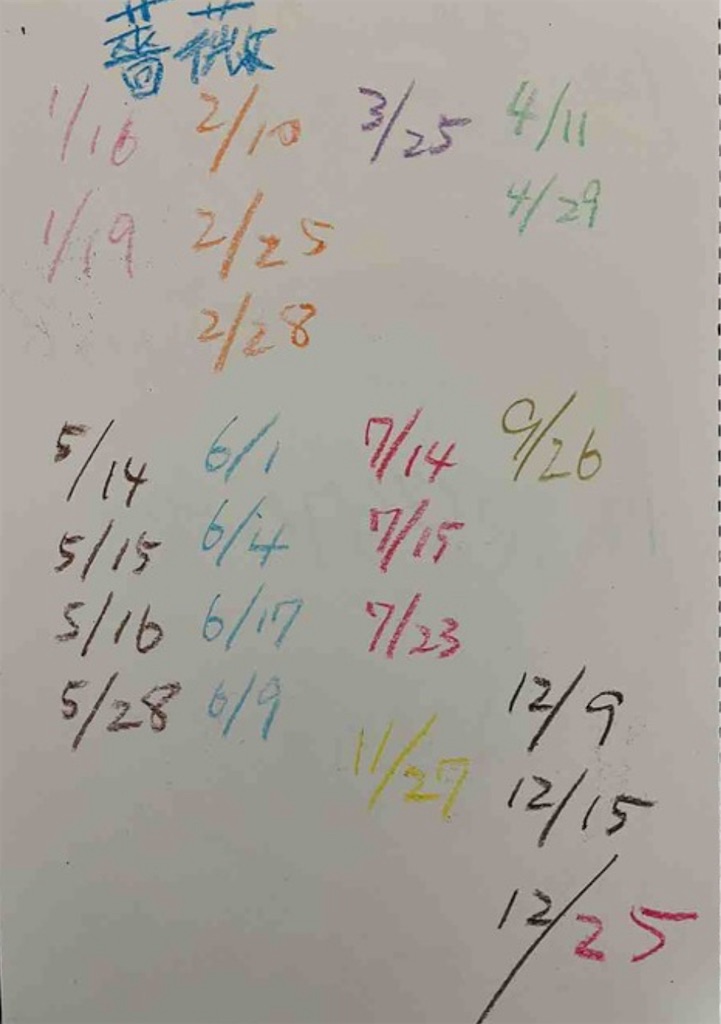 薔薇
1/16 2/10 3/25 4/11
1/19 2/25 4/29
2/28
5/14 6/1 7/14 9/26
5/15 6/4 7/15
5/16 6/17 7/23
5/28 6/9 12/9
11/27 12/15
12/25